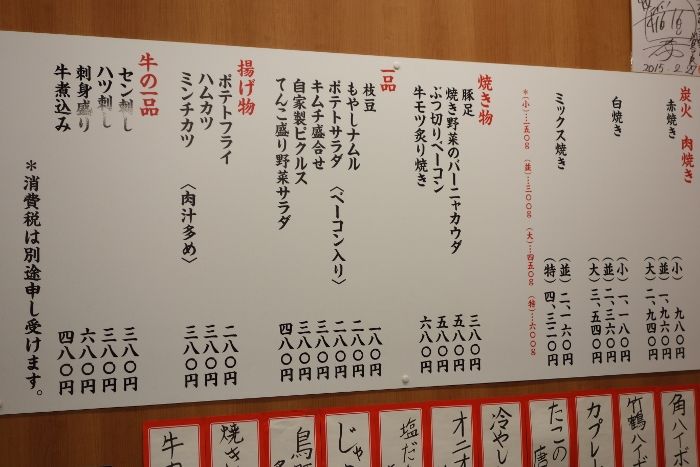 炭火 肉焼き
赤焼き (小) 九八〇円
(並) 一、九六〇円
(大) 二、九四〇円
白焼き (小) 一、一八〇円
(並) 二、三六〇円
(大) 三、五四〇円
ミックス焼き (並) 二、一六〇円
(特) 四、三二〇円
*(小)…一五〇g (並)…三〇〇g (大)…四五〇g (特)…六〇〇g
焼き物
豚足 三八〇円
焼き野菜のバーニャカウダ 五八〇円
ぶつ切りベーコン 五八〇円
牛モツ炙り焼き 六八〇円
一品
枝豆 一八〇円
もやしナムル 二八〇円
ポテトサラダ〈ベーコン入り〉 二八〇円
キムチ盛合せ 三八〇円
自家製ピクルス 三八〇円
てんこ盛り野菜サラダ 四八〇円
揚げ物
ポテトフライ 二八〇円
ハムカツ 三八〇円
ミンチカツ 〈肉汁多め〉 三八〇円
牛の一品
センン刺し 三八〇円
ハツ刺し 三八〇円
刺身盛り 六八〇円
牛煮込み 四八〇円
*消費税は別途申し受けます。
2015.2.
角ハイボ
竹鶴ハイボ
カプレー
たこの唐
冷やし
オニオ
塩だ
じゃ
鳥
焼き
牛